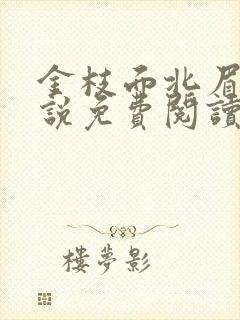 金枝西北眉
說免費閱讀
樓夢影